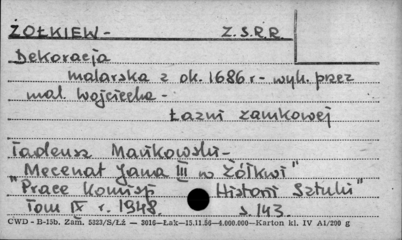 ŻOŁKIEW - Z.S.R.R.
Dekoracja
malarska z ok. 1686 r - wyk. przez
mal. Wojciecha -
Łazni zamkowej
Tadeusz Mańkowski -
"Mecenat Jana III w Żółkwi"
"Prace Komisji Historii Sztuki"
Tom IX r. 1948. s. 143.
CWD - B-15b. Zam. 5323/S/Łż — 3016—Łak—15.11.56—4.000.000—Karton kl. IV A1/200 g